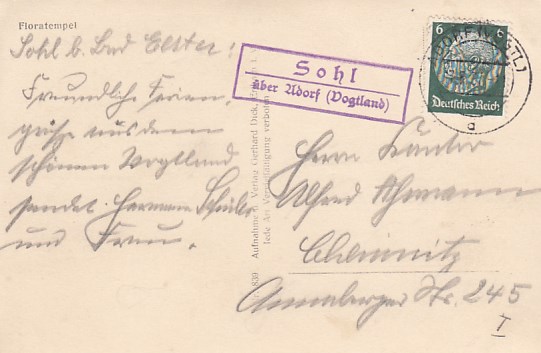 Floratempel
Sohl b. Bad Elster!
Freundliche Ferien-
grüße aus dem
schönen Vogtland
sendet Hermann Schüler
und Frau.
Sohl
über Adorf (Vogtland)
6 6
Deutsches Reich
ADORF (VOGTL)
a
Herrn Kantor
Alfred
Chemnitz
Annaberger Str. 245
I
Aufnahme u. Verlag Gerhard Dick,
Jede Art Vervielfältigung verboten
839